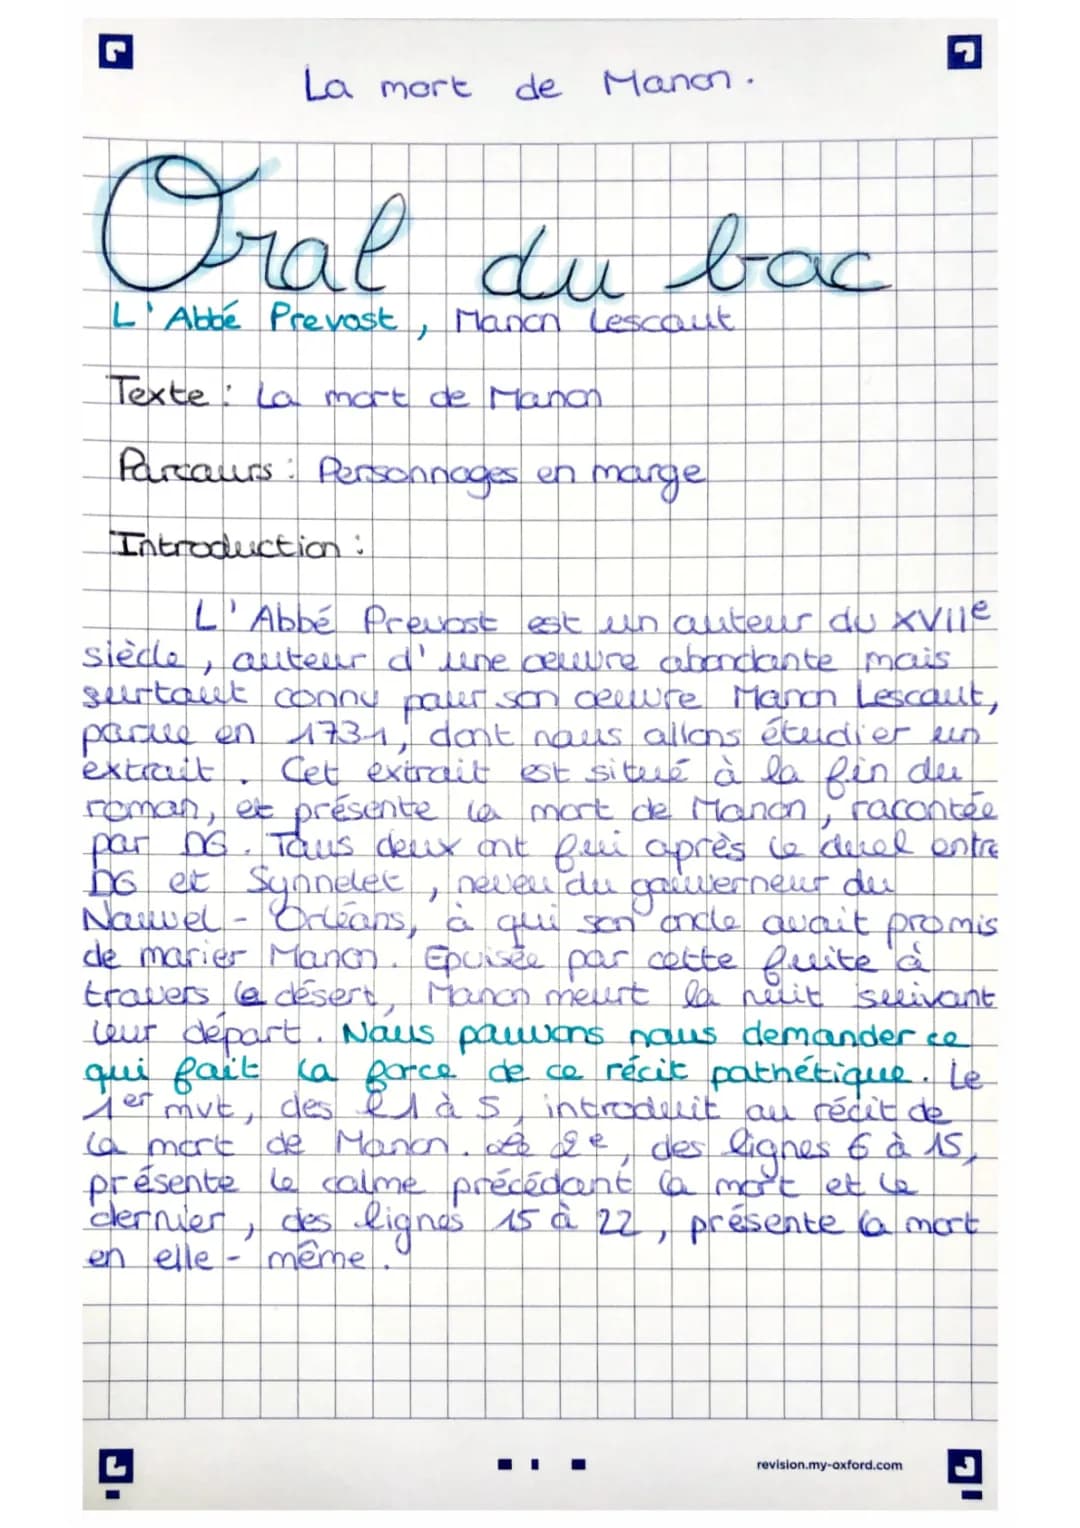 La mort de Manon.
Oral du bac
L'Abbé Prevost, Manon Lescaut
Texte : La mort de Manon
Parcours : Personnages en marge
Introduction :
L'Abbé Prevost est un auteur du XVIIe
siècle, auteur d'une oeuvre abondante mais
surtout connu pour son oeuvre Manon Lescaut,
parue en 1731, dont nous allons étudier un
extrait. Cet extrait est situé à la fin du
roman, et présente la mort de Manon, racontée
par DG. Tous deux ont fui après le duel entre
DG et Synnelet, neveu du gouverneur du
Nouvel-Orléans, à qui son oncle avait promis
de marier Manon. Epuisée par cette fuite à
travers le désert, Manon meurt la nuit suivant
leur départ. Nous pouvons nous demander ce
qui fait la force de ce récit pathétique. Le
1er mvt, des l1 à 5, introduit au récit de
la mort de Manon. Le 2e, des lignes 6 à 15,
présente le calme précédant la mort et le
dernier, des lignes 15 à 22, présente la mort
en elle-même.
revision.my-oxford.com